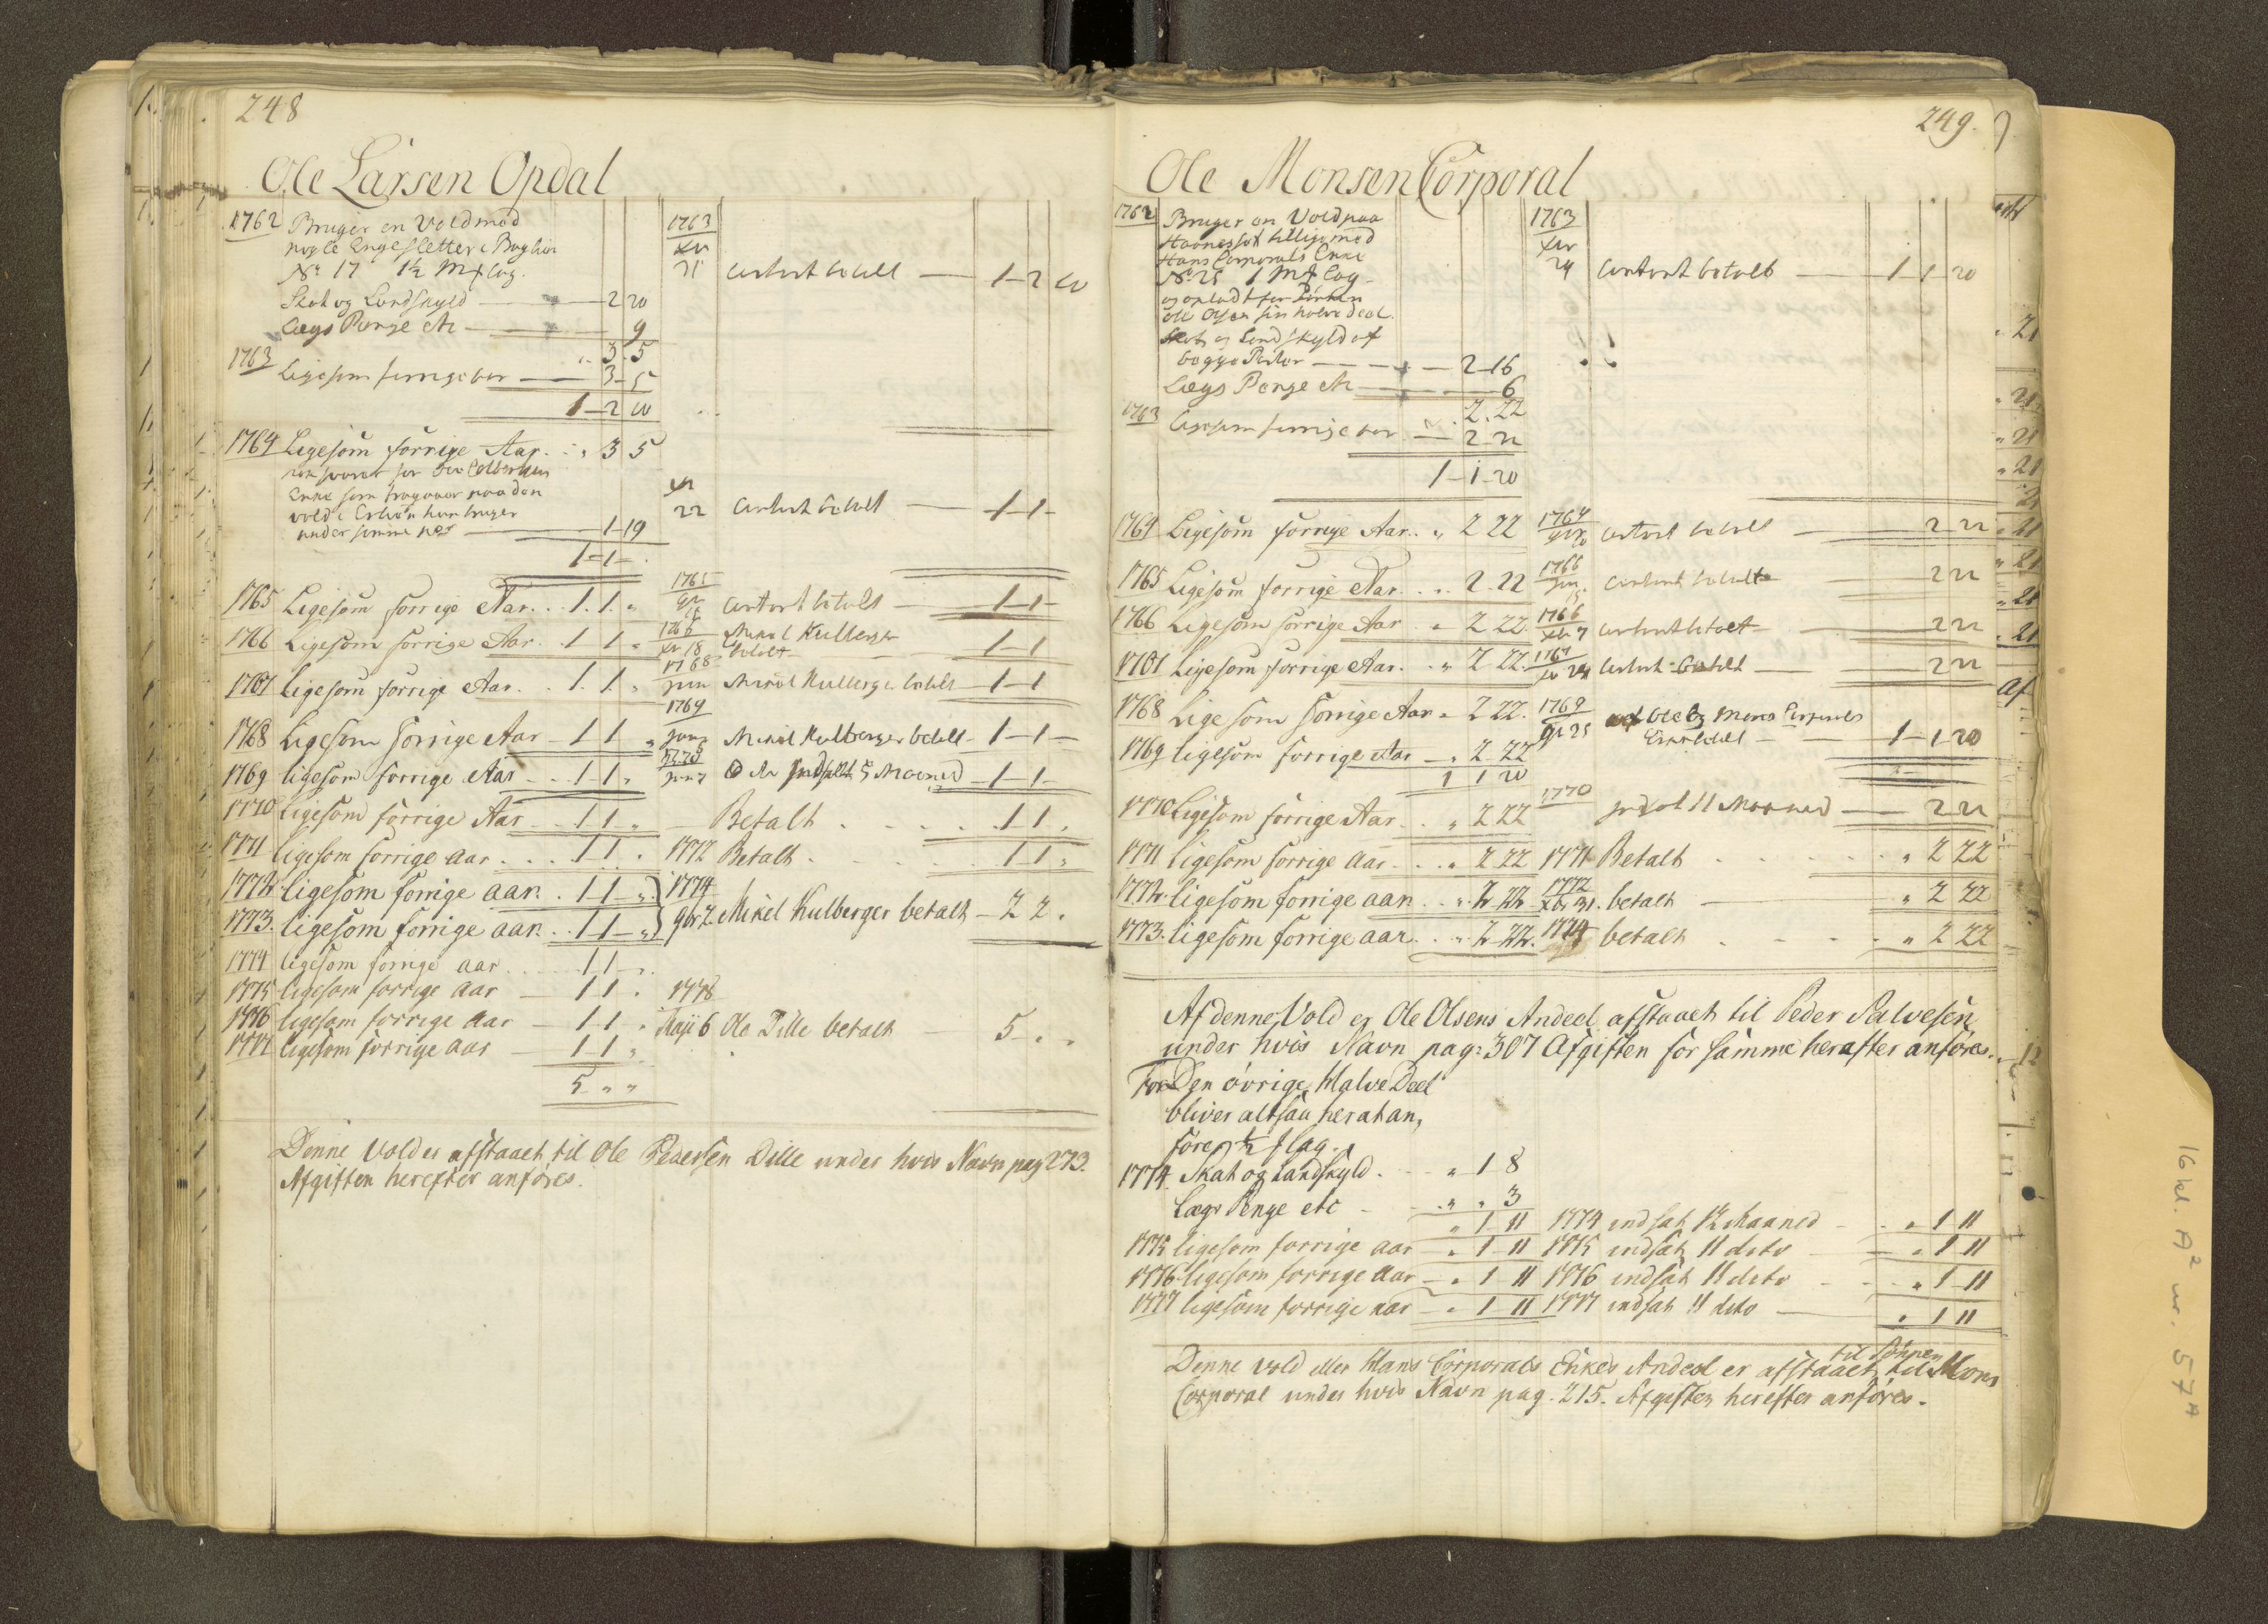 248
Ole Larsen Opdal
1762 Bruger en Vold med
nogle Engesletter i
No 17 1½ Mk Lag.
Skat og Landskyld — 2 20
Lægs Penge etc — 9
3 5
1763 Ligesom forrige aar — 3 5
1 2 10
1763
Xbr
contant betalt — 1 2 10
1764 Ligesom forrige Aar. . 3 5
Enke som
vold i hun bruger
under samme — 1 19
1 1 —
22 contant betalt — 1 1 —
1765 Ligesom forrige Aar. . 1. 1. "
1765 contant betalt — 1 1 —
1766 Ligesom forrige Aar. 1 1 "
1766 Xbr 18 Mikel Kulberger betalt — 1 1
1767 Ligesom forrige Aar. . 1. 1. "
1768 Mikel Kulberger betalt — 1 1
1768 Ligesom forrige Aar — 1 1 "
1769 Mikel Kulberger betalt — 1 1 —
1769 ligesom forrige Aar — 1 1 "
1770 indsatt 5 Maaned — 1 1 —
1770 Ligesom forrige Aar — 1 1 "
Betalt . . . . 1 1 .
1771 ligesom forrige aar . . . 1 1 .
1772 Betalt . . . . 1 1 "
1772 ligesom forrige aar. . 1 1 "
1773. ligesom forrige aar. . 1 1 "
1774 9br 7. Mikel Kulberger betalt — 2 2 .
1774 ligesom forrige aar . . . 1 1 .
1775 ligesom forrige aar — 1 1 .
1776 ligesom forrige aar — 1 1 .
1777 ligesom forrige aar — 1 1 "
5 " "
1778
Maji 6 Ole Dille betalt 5 . .
Denne Vold er afstaaet til Ole Pedersen Dille under hvis Navn pag 273.
Afgiften herefter anføres.
249.
Ole Monsen Corporal
1762 Bruger en Vold paa
tilligemed
Hans Corporals Enke
No 25 1 Mk Lag
og opladt for
Ole Olsen sin halve deel.
Skat og Landskyld af
begge Parter — 2 16
Lægs Penge etc — 6
2. 22
1763 Ligesom forrige aar — 2 22
1 1 20
1763
Xbr
24 contant betalt — 1 1 20
1764 Ligesom forrige Aar. . " 2 22
1764 contant betalt — 2 22
1765 Ligesom forrige Aar. . . " 2 22
1766 contant betalt — 2 22
1766 Ligesom forrige Aar " 2 22.
1766 Xbr 7 contant betalt — 2 22
1767 Ligesom forrige Aar. . " 2 22.
1767 Xbr 24 contant betalt — 2 22
1768 Ligesom forrige Aar " 2 22.
1769 ligesom forrige Aar — " 2 22
1 1 20
1769 ved Ole og Mons Corporals
— 1 1 20
1770 Ligesom forrige Aar. . " 2 22
1770 11 Maaned — 2 22
1771 ligesom forrige Aar. . . " 2 22
1771 Betalt . . . . " 2 22
1772 ligesom forrige aar . . " 2 22
1772 Xbr 31. betalt — " 2 22
1773. ligesom forrige aar . . " 2 22.
1774 betalt . . . . " 2 22
Af denne Vold er Ole Olsens Andeel afstaaet til Peder Salvesen,
under hvis Navn pag: 307 Afgiften for samme herefter anføres.
For Den øvrige Halve Deel
bliver altsaa her at an,
føre ½ lag.
1774 Skat og Landskyld . " 1 8
Lægs Penge etc - " " 3
" 1 11
1774 indsat 12 Maaned — " 1 11
1775 ligesom forrige aar — " 1 11
1775 indsat 11 dito — " 1 11
1776 ligesom forrige aar — " 1 11
1776 indsat 11 dito — " 1 11
1777 ligesom forrige aar — " 1 11
1777 indsat 11 dito — " 1 11
Denne vold eller Hans Corporals Enkes Andeel er afstaaet til Sønnen Mons
Corporal under hvis Navn pag. 215. Afgiften herefter anføres.
16 kl. A² nr. 57ᴬ